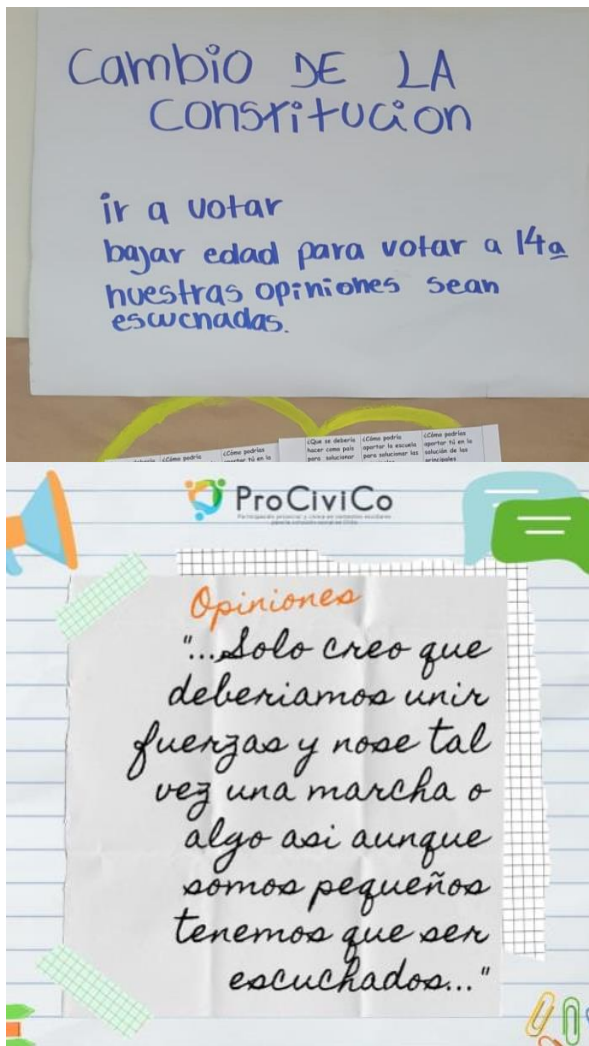 Cambio DE LA
Constitucion
ir a votar
bajar edad para votar a 14a
nuestras opiniones sean
escuchadas.
¿Cómo podría
¿Cómo podrías
aportar tú en la
¿Que se debería
hacer como país
para solucionar
¿Cómo podría
aportar la escuela
para solucionar los
¿Cómo podrías
aportar tú en la
solución de los
principales
ProCiviCo
Participación prosocial y cívica en contextos escolares
para la cohesión social en Chile
Opiniones
"...Solo creo que
deberiamos unir
fuerzas y nose tal
vez una marcha o
algo asi aunque
somos pequeños
tenemos que ser
escuchados..."